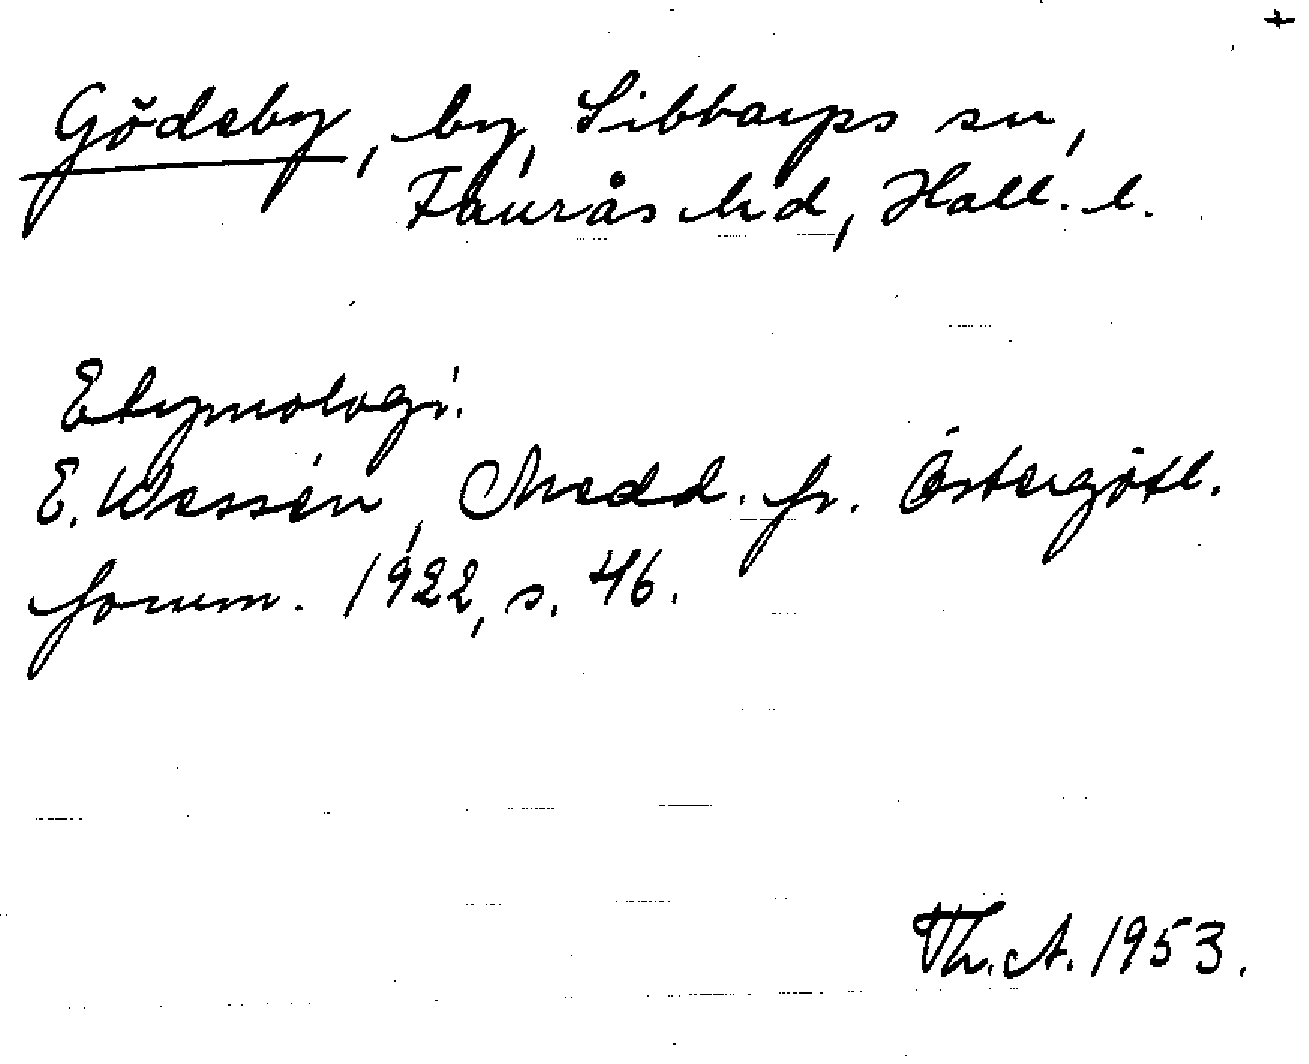 +
Gödeby, by, Sibbarps sn,
Faurås hd, Hall. l.
Etymologi.
E. Wessén, Medd. fr. Östergötl.
fornm. 1922, s. 46.
Th. A. 1953.